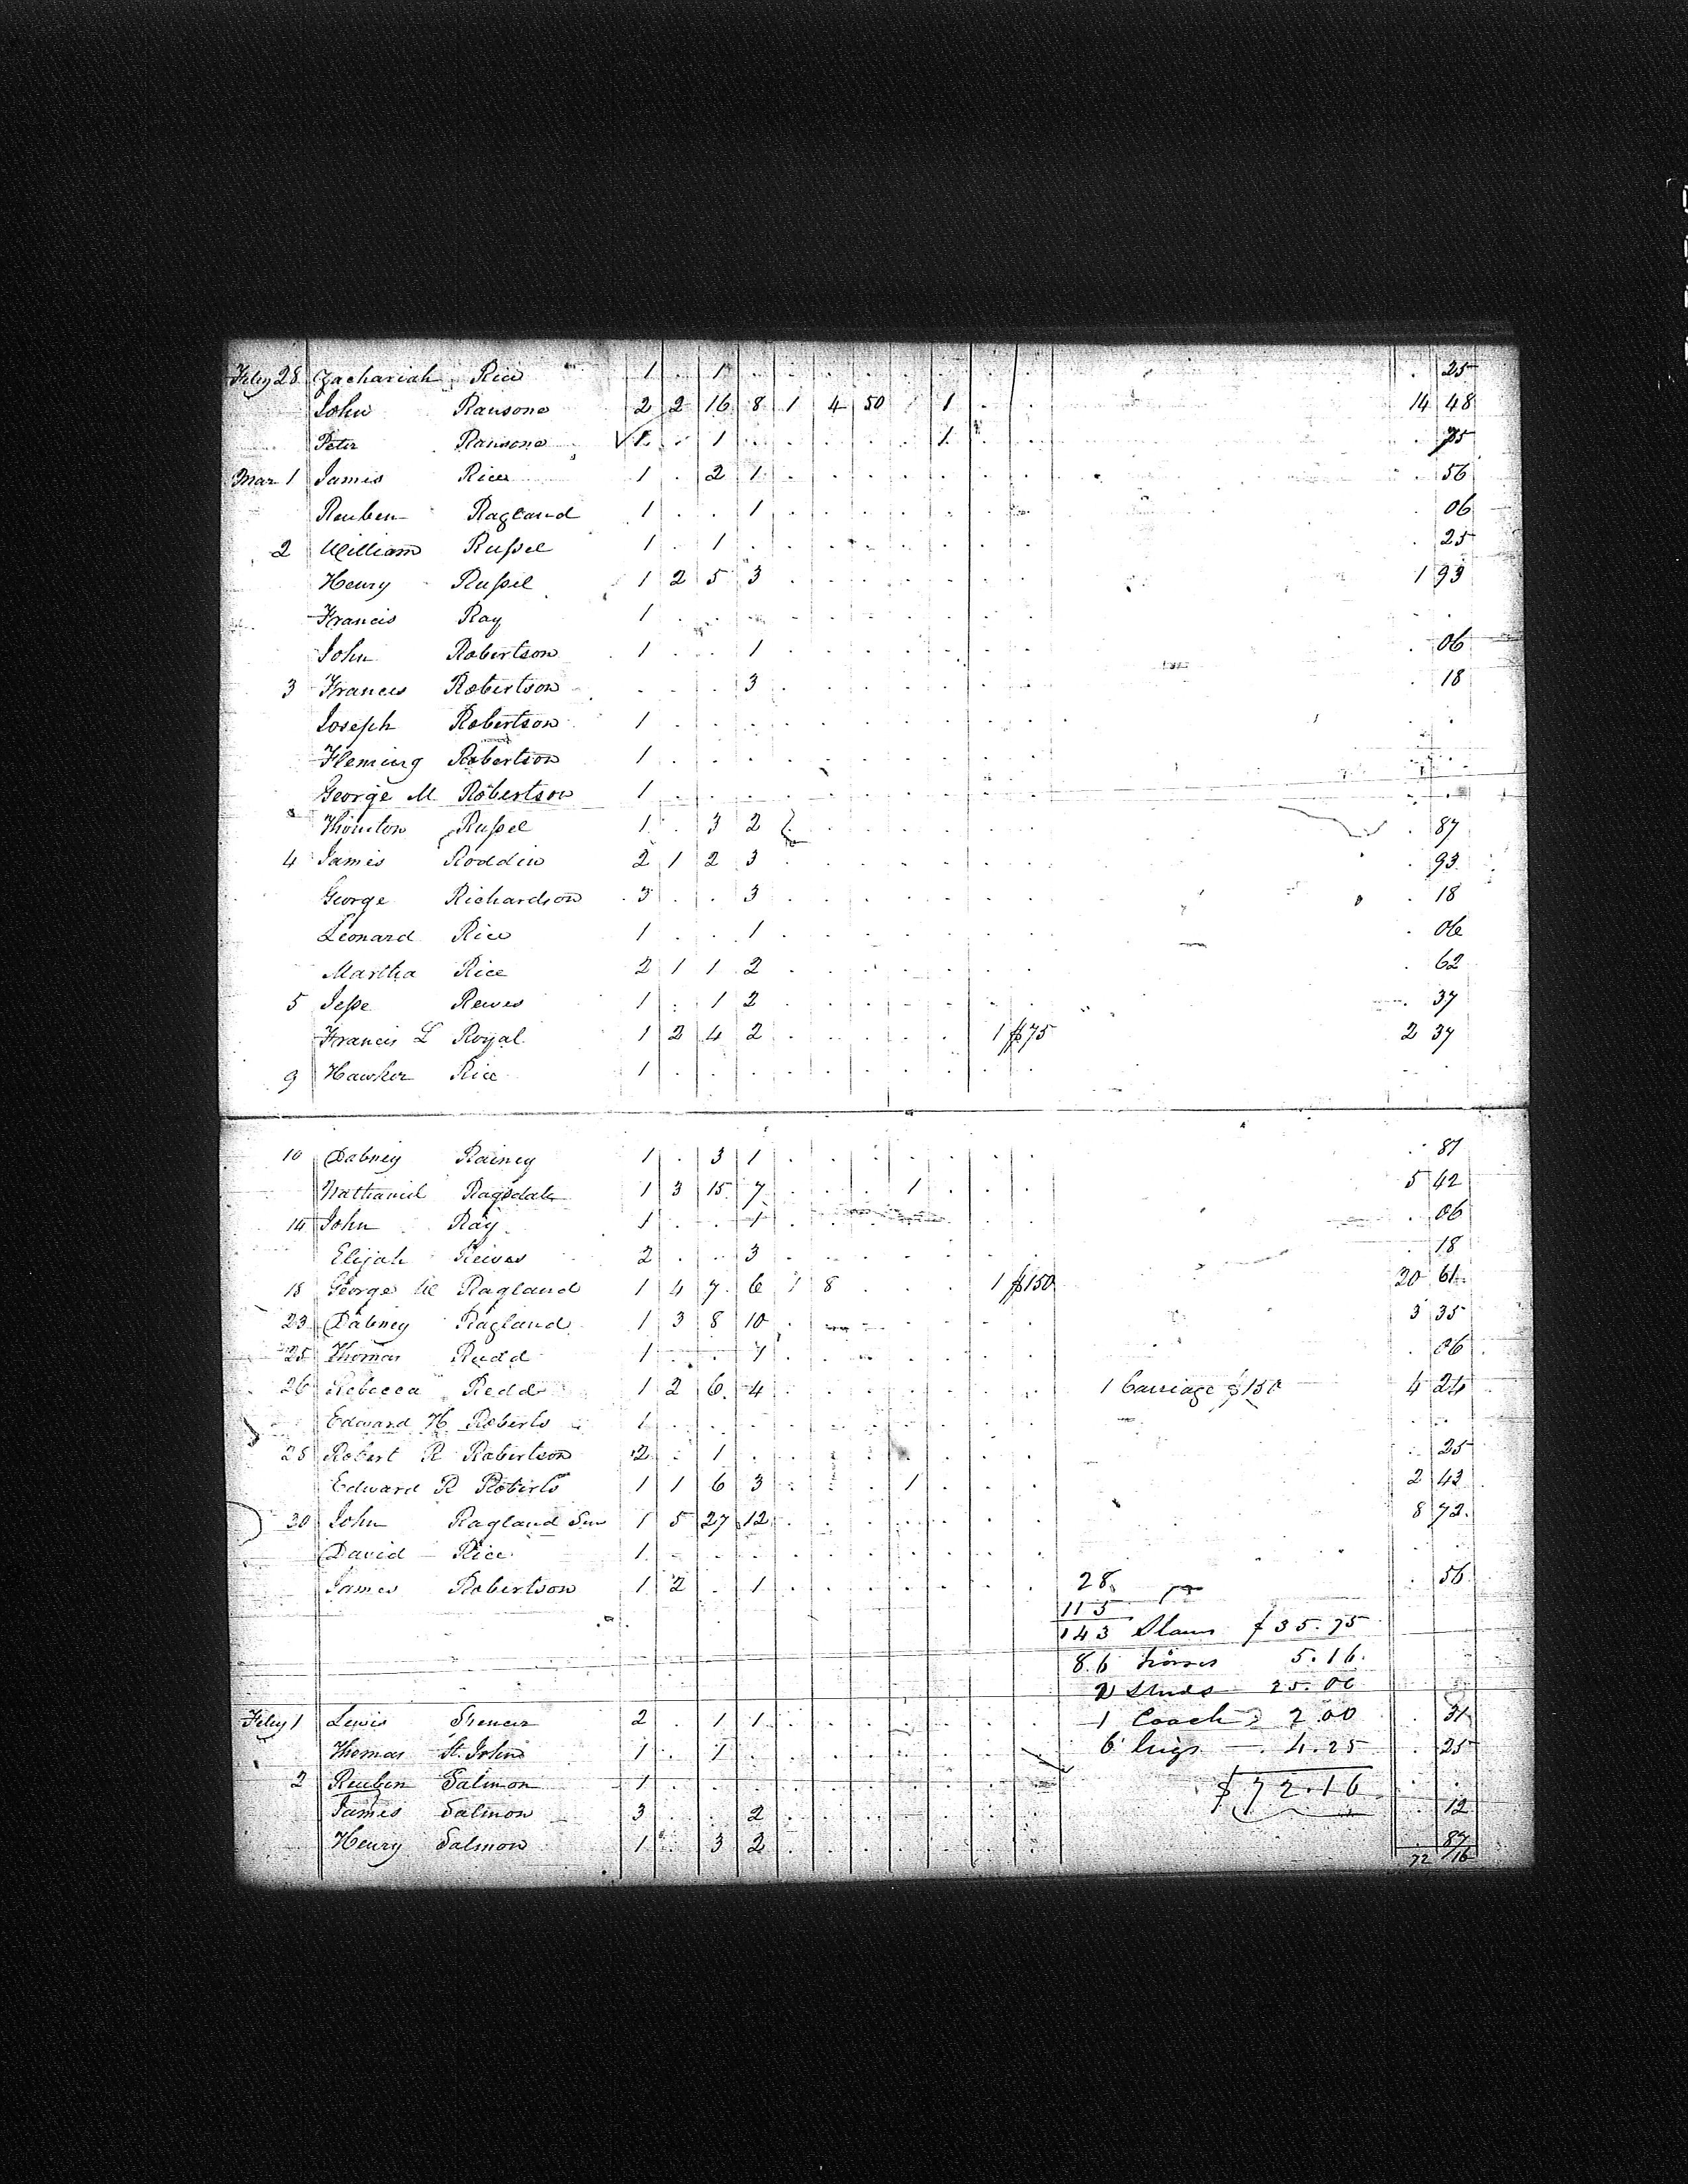 Feby 28 Zachariah Rice 1 . 1 . . . . . . . . . 25
John Ransone 2 2 16 8 1 4 50 1 . . 14 48
Peter Ransone √ 1 . 1 . . . . . . 1 . . . 75
Mar 1 James Rice 1 . 2 1 . . . . . . . . 56
Reuben Ragland 1 . . 1 . . . . . . . . 06
2 William Russel 1 . 1 . . . . . . . . . 25
Henry Russel 1 2 5 3 . . . . . . . 1 93
Francis Ray 1 . . . . . . . . . .
John Robertson 1 . . 1 . . . . . . . . 06
3 Frances Robertson . . . 3 . . . . . . . . 18
Joseph Robertson 1 . . . . . . . . . .
Fleming Robertson 1 . . . . . . . . . .
George M Robertson 1 . . . . . . . . . .
Thornton Russel 1 . 3 2 . . . . . . . . 87
4 James Roddin 2 1 2 3 . . . . . . . . 93
George Richardson 3 . . 3 . . . . . . . . 18
Leonard Rice 1 . . 1 . . . . . . . . 06
Martha Rice 2 1 1 2 . . . . . . . . 62
5 Jesse Reives 1 . 1 2 . . . . . . . . 37
Francis L Royal 1 2 4 2 . . . . . 1 $75 2 37
9 Hawker Rice 1 . . . . . . . . . .
10 Dabney Rainey 1 . 3 1 . . . . . . . . 87
Nathaniel Ragsdale 1 3 15 7 . . . 1 . . . 5 42
14 John Ray 1 . . 1 . . . . . . . . 06
Elijah Reives 2 . . 3 . . . . . . . . 18
18 George W Ragland 1 4 7 6 1 8 . . . 1 $150 20 61
23 Dabney Ragland 1 3 8 10 . . . . . . . 3 35
25 Thomas Redd 1 . . 1 . . . . . . . . 06
26 Rebecca Redd 1 2 6 4 . . . . . . . 1 Carriage $150 4 24
Edward H Roberts 1 . . . . . . . . . .
28 Robert R Robertson 2 . 1 . . . . . . . . . 25
Edward R Roberts 1 1 6 3 . . . 1 . . . 2 43
30 John Ragland Sen 1 5 27 12 . . . . . . . 8 72
David Rice 1 . . . . . . . . . .
James Robertson 1 2 . 1 . . . . . . . 28 . 56
115
143 Slaves $35.75
86 horses 5.16
2 Studs 25.00
Feby 1 Lewis Spencer 2 . 1 1 . . . . . . . 1 Coach 2.00 . 31
Thomas St. John 1 . 1 . . . . . . . . 6 Gigs 4.25 . 25
2 Reuben Salmon 1 . . . . . . . . . . $72.16
James Salmon 3 . . 2 . . . . . . . . 12
Henry Salmon 1 . 3 2 . . . . . . . . 87
72 16